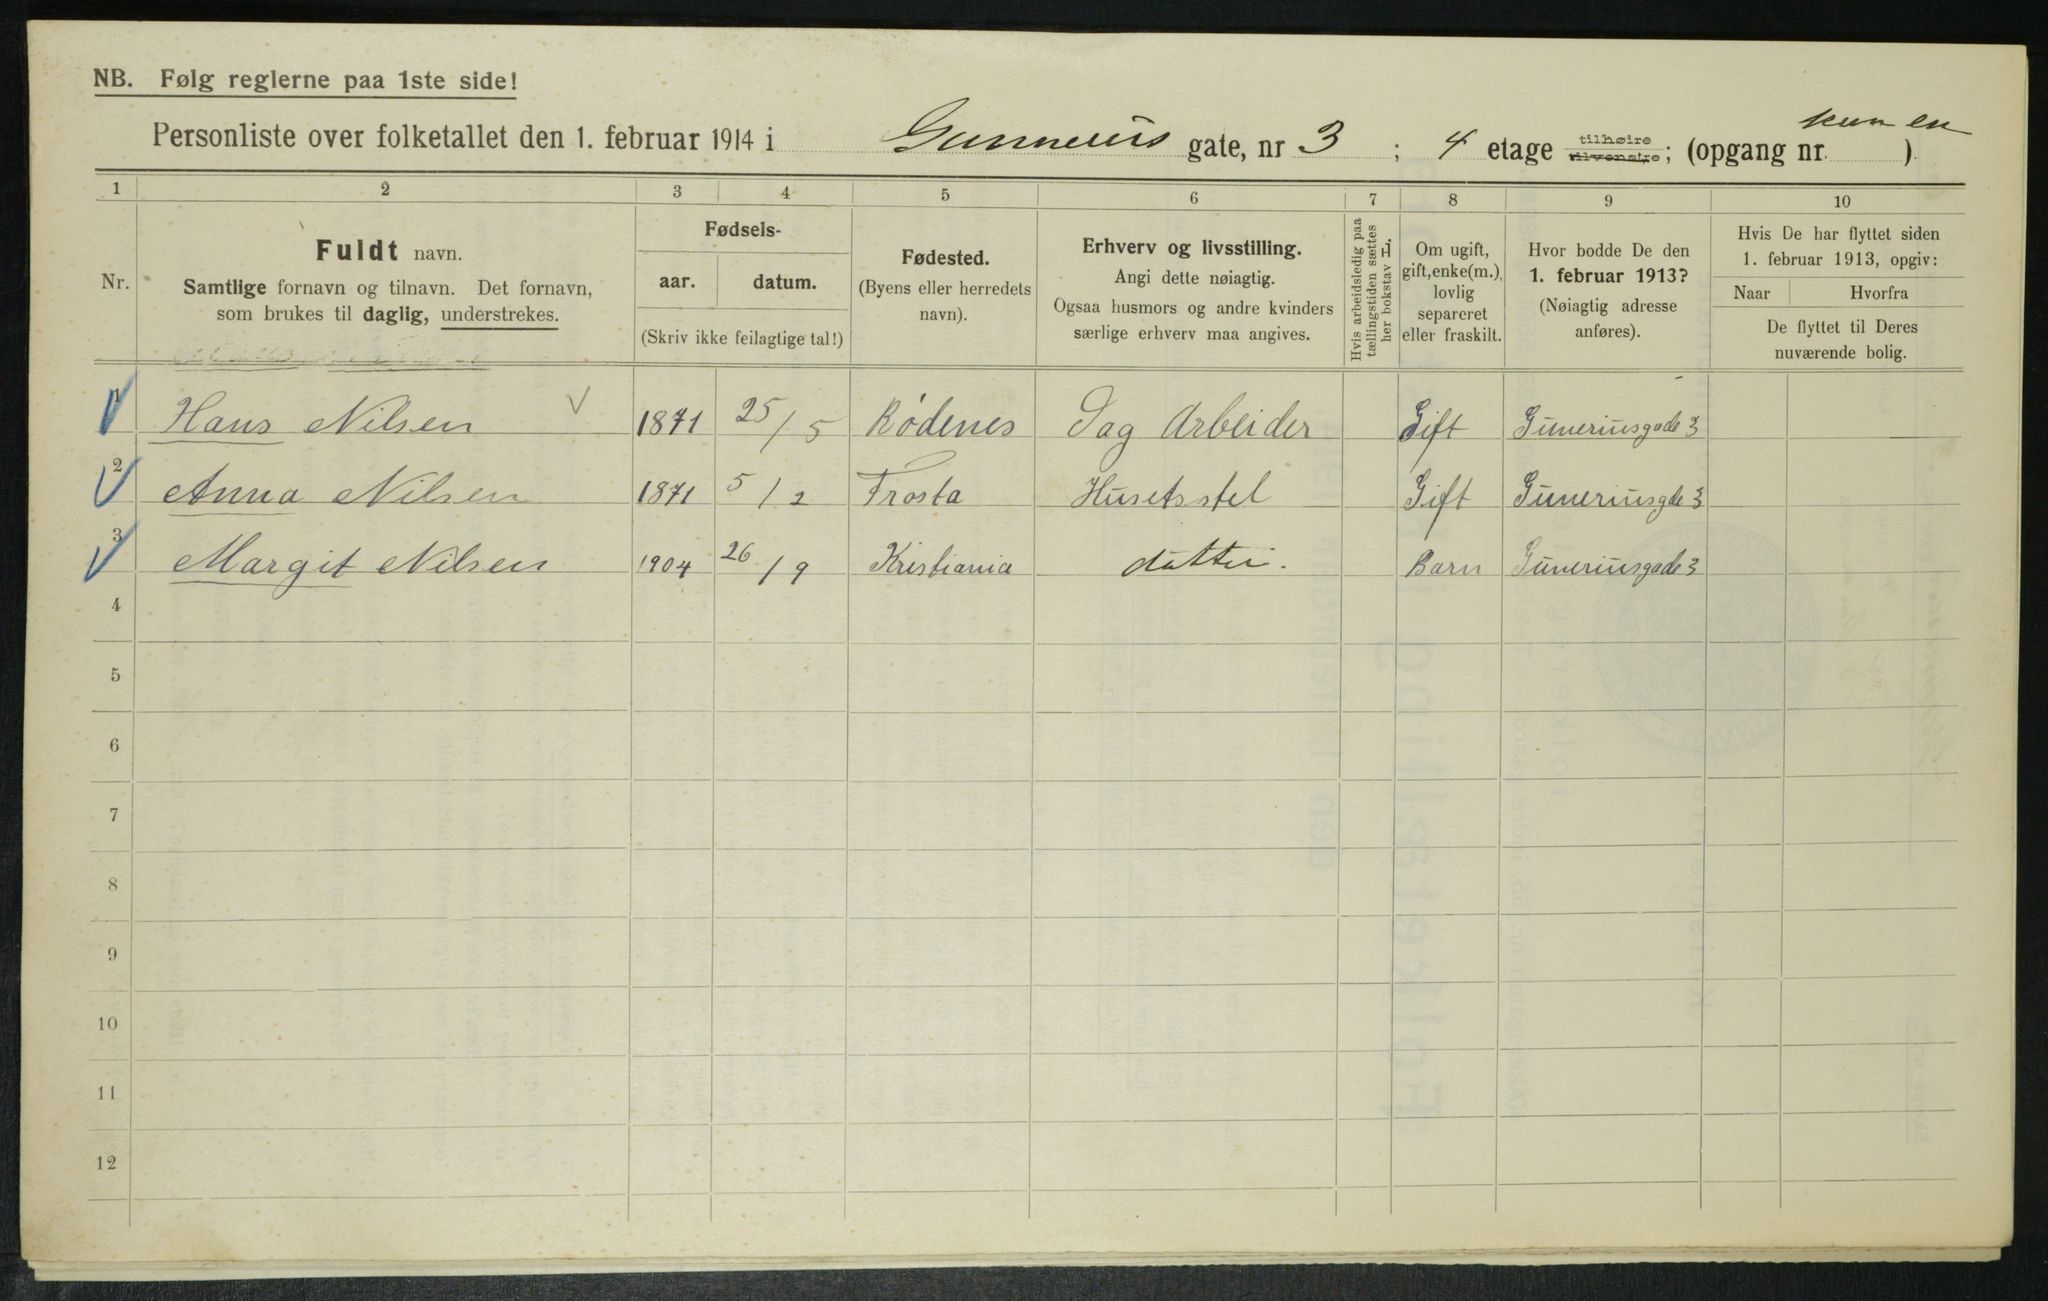 NB. Følg reglerne paa 1ste side!
kun en
Personliste over folketallet den 1. februar 1914 i Gunnerius gate, nr 3 ; 4 etage tilhøire tilvenstre; (opgang nr. )
1 2 3 4 5 6 7 8 9 10
Nr.
Fuldt navn.
Samtlige fornavn og tilnavn. Det fornavn,
som brukes til daglig, understrekes.
Fødsels-
aar. datum.
(Skriv ikke feilagtige tal!)
Fødested.
(Byens eller herredets
navn).
Erhverv og livsstilling.
Angi dette nøiagtig.
Ogsaa husmors og andre kvinders
særlige erhverv maa angives.
Hvis arbeidsledig paa
tællingstiden sættes
her bokstav L
Om ugift,
gift, enke(m.),
lovlig
separeret
eller fraskilt.
Hvor bodde De den
1. februar 1913?
(Nøiagtig adresse
anføres).
Hvis De har flyttet siden
1. februar 1913, opgiv:
Naar Hvorfra
De flyttet til Deres
nuværende bolig.
1 Hans Nilsen 1871 25/5 Rødenes Sag Arbeider Gift Guneriusgade 3
2 Anna Nilsen 1871 5/2 Frosta Husetsstel Gift Guneriusgde 3
3 Margit Nilsen 1904 26/9 Kristiania datter. Barn Guneriusgade 3
4
5
6
7
8
9
10
11
12